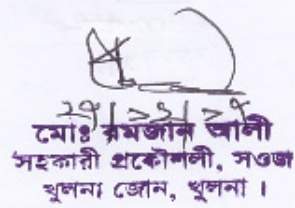 ২৭|১১|১৭
মোঃ রমজান আলী
সহকারী প্রকৌশলী, সওজ
খুলনা জোন, খুলনা ।